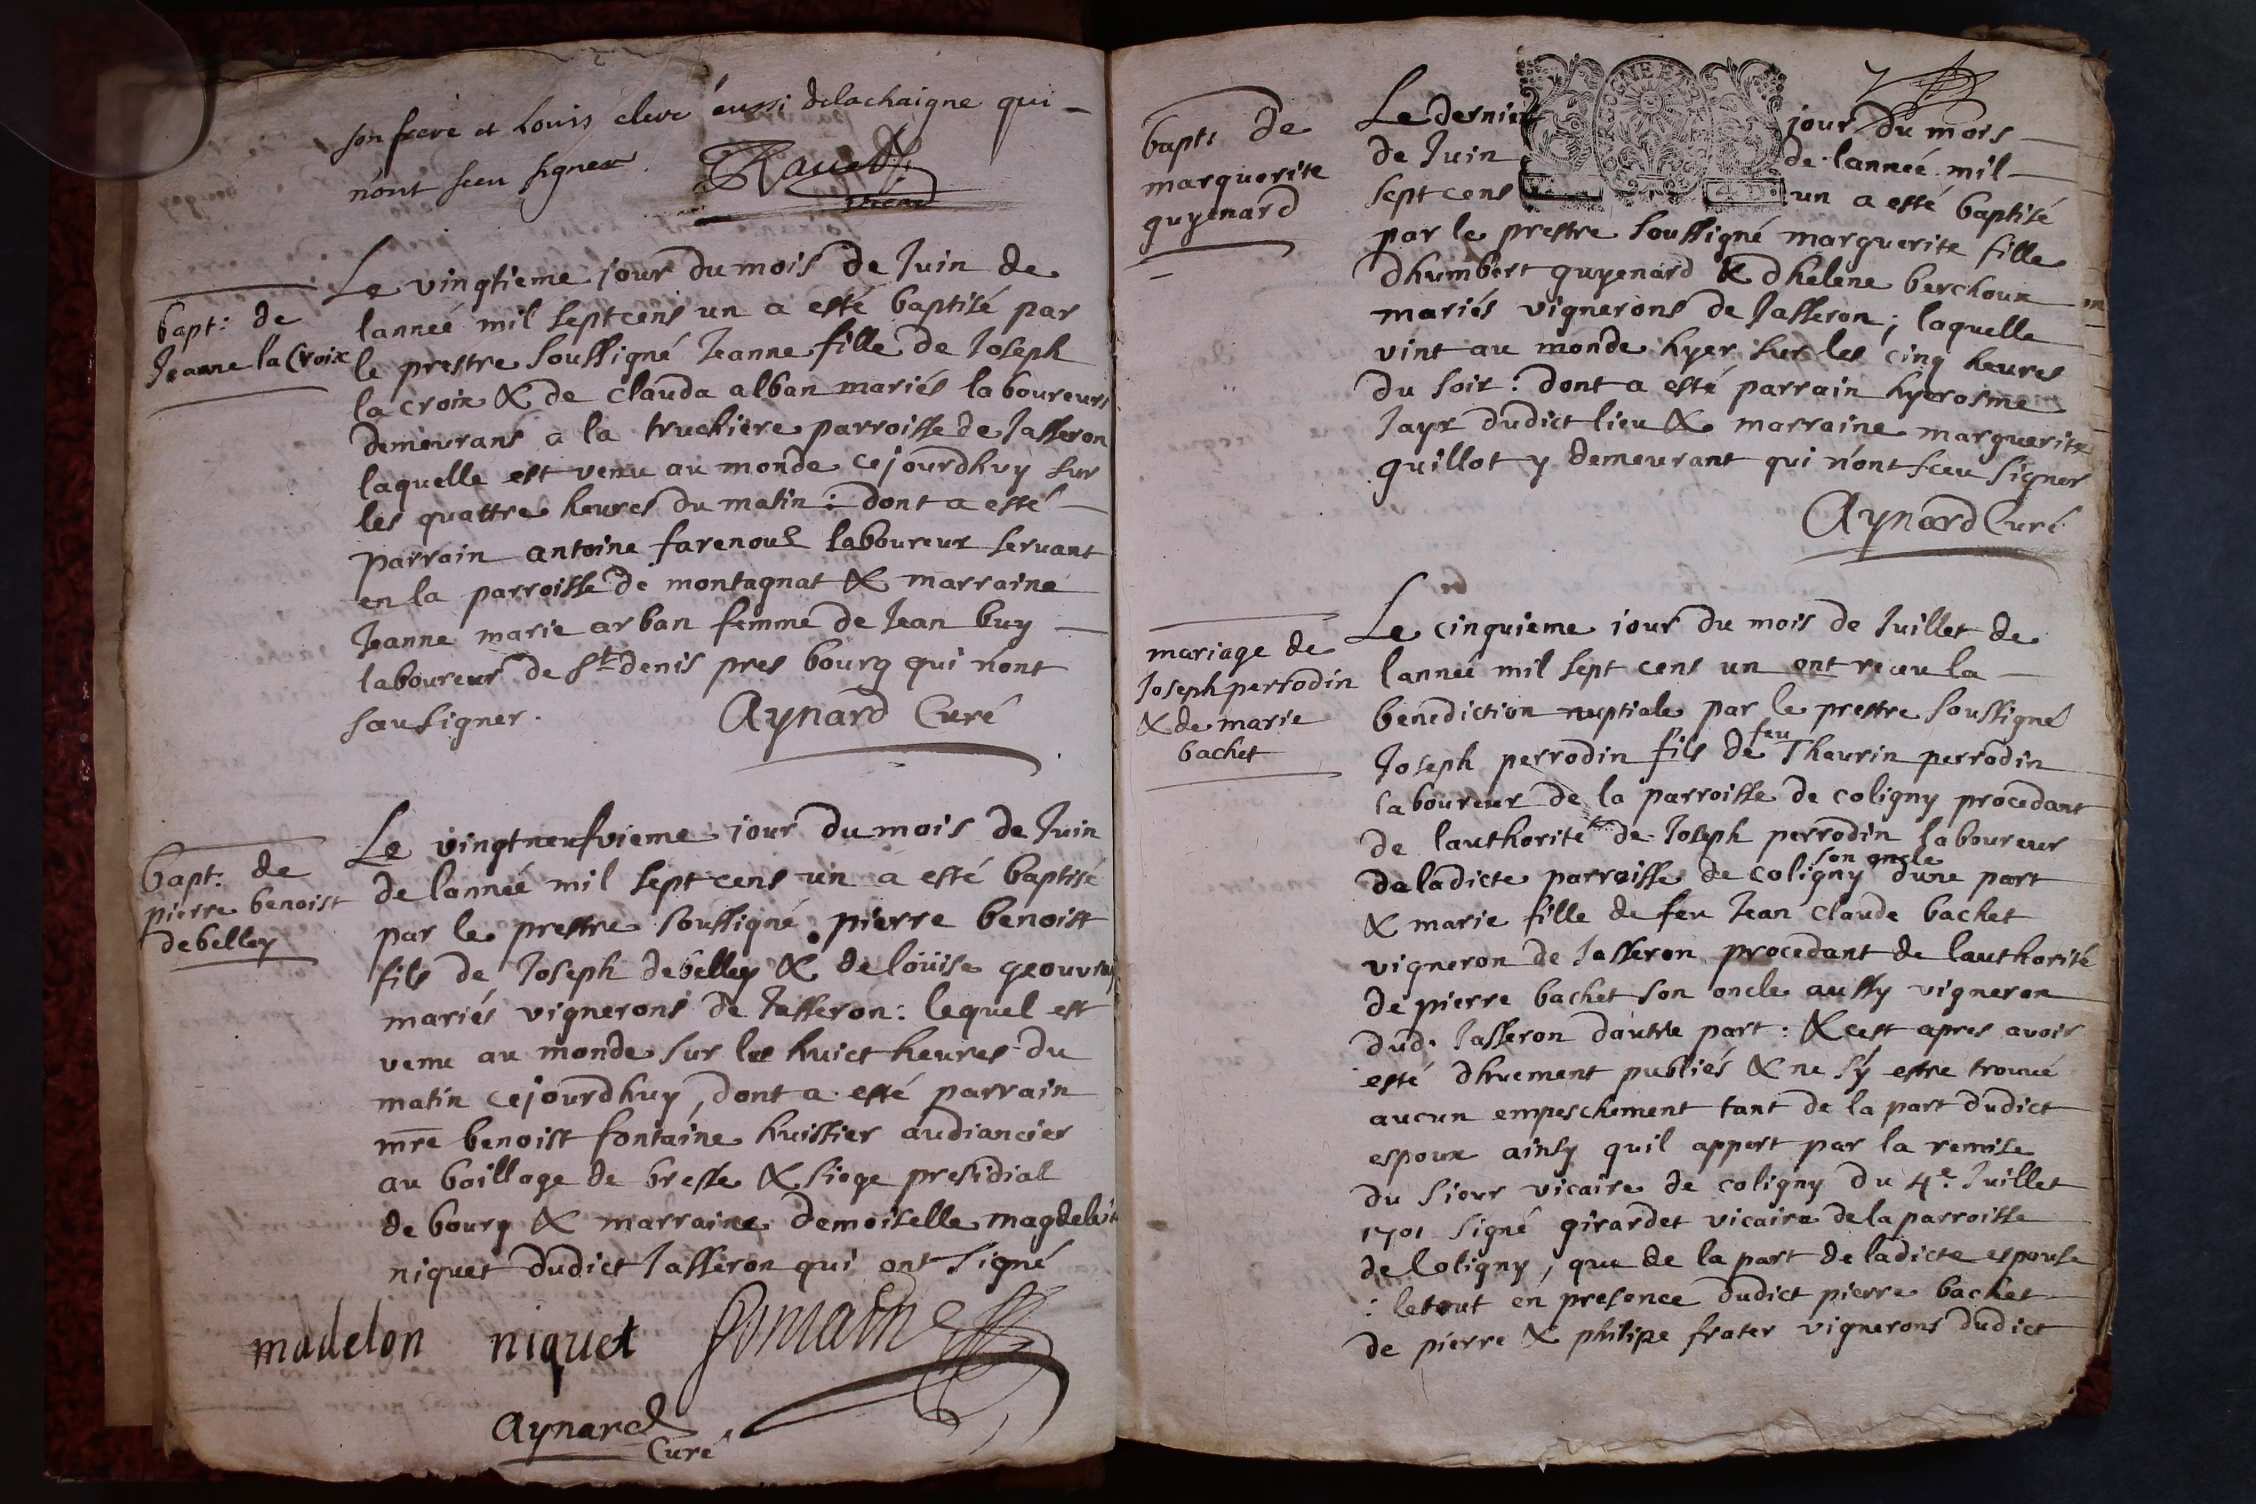 son frere et Louis eleve aussi delachaigne qui
n'ont sceu signer. Ravet
vicaire
bapt: de
Jeanne la Croix
Le vingtieme jour du mois de Juin de
lanneé mil sept cens un a esté baptisé par
le prestre soussigné Jeanne fille de Joseph
la croix & de clauda alban mariés laboureurs
demeurans a la truchiere parroisse de Jasseron
laquelle est venu au monde cejourdhuy sur
les quattre heures du matin: dont a esté
parrain antoine farenoud laboureur servant
en la parroisse de montagnat & marraine
Jeanne marie arban femme de Jean buy
laboureur de St denis pres bourg qui n'ont
sau signer. Aynard Curé
bapt: de
pierre benoist
debelley
Le vingtneufvieme jour du mois de Juin
de lanneé mil sept cens un a esté baptisé
par le prestre soussigné pierre benoist
fils de Joseph debelley & de loüise geouvray
mariés vignerons de Jasseron: lequel est
venu au monde sur les huict heures du
matin cejourdhuy, dont a esté parrain
mre benoist fontaine huissier audiancier
au baillage de bresse & siege presidial
de bourg & marraine demoiselle magdeleine
niquet dudict Jasseron qui ont signé
madelon niquet fontaine
Aynard
Curé
bapt: de
marguerite
guyenard
Le dernier jour du mois
de Juin de lanneé mil
sept cens un a esté baptisé
par le prestre soussigné marguerite fille
dhumbert guyenard & dhelene berchoux
mariés vignerons de Jasseron; laquelle
vint au monde hyer sur les cinq heures
du soir: dont a esté parrain hyerosme
Jayr dudict lieu & marraine marguerite
guillot y demeurant qui n'ont sceu signer
Aynard Curé
mariage de
Joseph perrodin
& de marie
bachet
Le cinquieme jour du mois de Juillet de
lanneé mil sept cens un ont receu la
benediction nuptiale par le prestre soussigné
Joseph perrodin fils de feu Thaurin perrodin
laboureur de la parroisse de coligny procedant
de lauthorité de Joseph perrodin laboureur
de ladicte parroisse de coligny son oncle dune part
& marie fille de feu Jean claude bachet
vigneron de Jasseron procedant de lauthorité
de pierre bachet son oncle aussy vigneron
dud. Jasseron dautre part: & cest apres avoir
esté dhuement publiés & ne sy estre trouvé
aucun empeschement tant de la part dudict
espoux ainsy quil appert par la remise
du sieur vicaire de coligny du 4e Juillet
1701 signé girardet vicaire de la parroisse
de Coligny, que de la part de ladicte espouse
: le tout en presence dudict pierre bachet
de pierre & philipe frater vignerons dudict